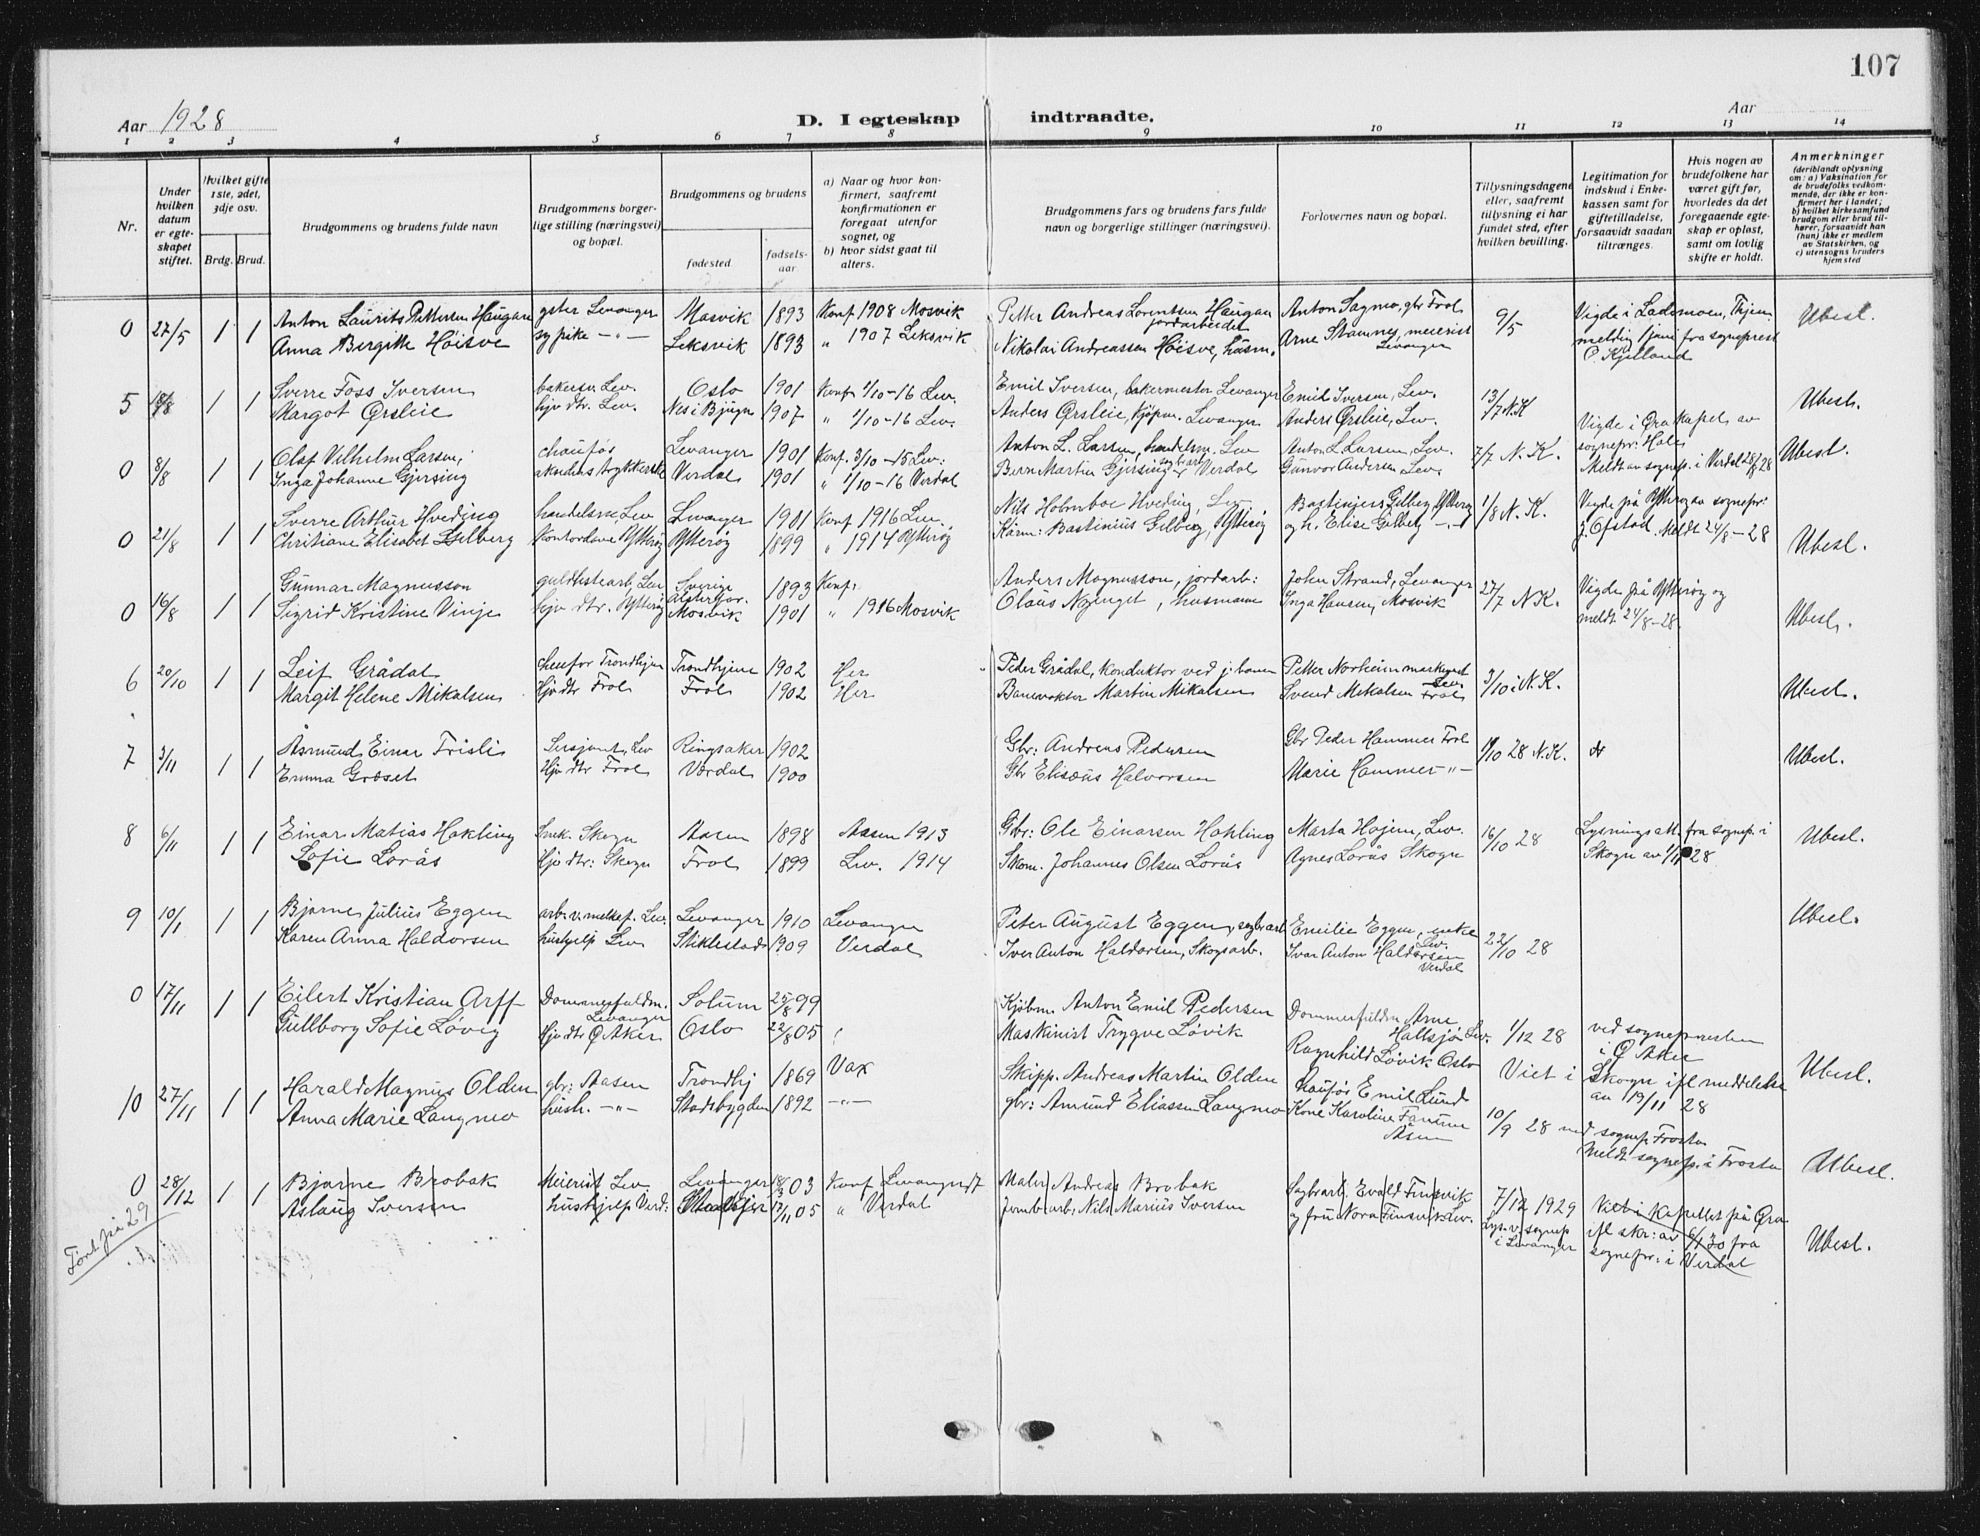 107
Aar 1928
D. I egteskap indtraadte.
Aar
1 2 3 4 5 6 7 8 9 10 11 12 13 14
Nr.
Under hvilken datum er egteskapet stiftet.
Hvilket gifte 1ste, 2det, 3dje osv.
Brdg. Brud.
Brudgommens og brudens fulde navn
Brudgommens borgerlige stilling (næringsvei) og bopæl.
Brudgommens og brudens
fødested.
fødselsaar
a) Naar og hvor konfirmert, saafremt konfirmationen er foregaat utenfor sognet, og
b) hvor sidst gaat til alters.
Brudgommens fars og brudens fars fulde navn og borgerlige stillinger (næringsvei).
Forlovernes navn og bopæl.
Tillysningsdagene eller, saafremt tillysning ei har fundet sted, efter hvilken bevilling.
Legitimation for indskud i Enkekassen samt for giftetilladelse, forsaavidt saadan tiltrænges.
Hvis nogen av brudefolkene har været gift før, hvorledes da det foregaaende egteskap er opløst, samt om lovlig skifte er holdt.
Anmerkninger
(deriblandt oplysning om: a) Vaksination for de brudefolks vedkommende, der ikke er konfirmert her i landet; b) hvilket kirkesamfund brudgom eller brud tilhører, forsaavidt han (hun) ikke er medlem av Statskirken, og c) utensogns bruders hjemsted
0 27/5 1 1 Anton Laurits Pettersen Haugan Levanger Mosvik 1893 Konf 1908 Mosvik Petter Andreas Lorentsen Haugan jordarbeider Anton Sagmo, gbr Frol 9/5 Vigde i Lademoen, Thjem Ubesl.
Anna Bergitte Höisve sypike -"- Leksvik 1893 " 1907 Leksvik Nikolai Andreassen Höisve, husm. Arne Stamnes, meierist Levanger melding 1 juni fra sogneprest P. Kjelland
5 18/8 1 1 Sverre Foss Iversen bakersv. Lev. Oslo 1901 Konf 1/10-16 Lev. Emil Iversen, bakermester Levanger Emil Iversen, Lev. 13/7 N.K Ubesl.
Margot Ørsleie hjv dtr. Lev. Nes i Bjugn 1907 " 1/10-16 Lev. Anders Ørsleie, kjøpm. Levanger Anders Ørsleie, Lev.
0 8/8 1 1 Olaf Vilhelm Larsen, chauffør Levanger 1901 Konf. 3/10-15 Lev: Anton L. Larsen, handelsm. Lev Anton L Larsen, Lev. 7/7 N.K. Vigde i Øra kapel av sognepr: Ubesl.
Inga Johanne Gjersing Verdal 1901 " 1/10-16 Verdal Bern Martin Gjersing Verdal Gunvor Andersen Lev. Meldt av sognep. i Verdal 28/8 28
0 21/8 1 1 Sverre Arthur Hveding handelsm Lev Levanger 1901 Konf 1916 Lev. Nils Holmboe Hveding, Lev Gilberg, Ytterøy 1/8 N.K. Vigde på Ytterøy av sognepr: Ubesl.
Christiane Elisabet Gilberg Kontordame Ytterøy Ytterøy 1899 " 1914 Ytterøy Bastinius Gilberg, Ytterøy og h. Elise Gilberg -"- J. Ofstad. Meldt 24/8-28
0 16/8 1 1 Gunnar Magnusson Lev Sverige 1893 Konf. Anders Magnusson, jordarb: John Strand, Levanger 27/7 N.K. Vigde på Ytterøy og Ubesl.
Sigrid Kristine Vinje hjv dtr. Ytterøy Mosvik 1901 " 1916 Mosvik Olaus Nyenget, husmann Inga Hansen, Mosvik meldt 24/8-28.
6 20/10 1 1 Leif Grådal Trondhjem Trondhjem 1902 Her Peder Grådal, konduktør ved j.banen Petter Norheim Lev. 3/10 i N.K. Ubesl.
Margit Helene Mikalsen Hjv dtr Frol Frol 1902 Her Banevokter Martin Mikalsen Svend Mikalsen Frol
7 3/11 1 1 Åsmund Einar Frisli Sersjant, Lev Ringsaker 1902 Gbr: Andreas Pedersen Gbr Peder Hammer Frol /10 28 N.K. Ubesl.
Emma Græset Hjv dtr Frol Værdal 1900 Gbr Elisæus Halvorsen Marie Hammer -"-
8 6/11 1 1 Einar Matias Hokling Skogn Aasen 1898 Aasen 1913 Gbr: Ole Einarsen Hokling Marta Højem, Lev. 16/10 28 Lysningsatt. fra sognep. i Ubesl.
Sofie Lorås Hjv dtr: Skogn Frol 1899 Lev. 1914 Skom. Johannes Olsen Lorås Agnes Lorås Skogn Skogn av 1/11 28
9 10/1 1 1 Bjarne Julius Eggen arb. v. Lev. Levanger 1910 Levanger Peter August Eggen, sagbr.arb Emilie Eggen, enke Lev. 22/10 28 Ubesl.
Karen Anna Haldorsen hushjelp Lev Stiklestad 1909 Verdal Iver Anton Haldorsen, Skogsarb. Ivar Anton Haldorsen Verdal
0 17/11 1 1 Eilert Kristian Arff Dommerfuldm. Levanger Solum 25/8 99 Kjøbm. Anton Emil Pedersen Dommerfuldm Arne Hallsjø Lev. 1/12 28 ved sognepresten i Ø Aker Ubesl.
Gullborg Sofie Løvig Hjv dtr Ø Aker Oslo 22/8 05 Maskinist Trygve Løvik Ragnhild Løvik Oslo
10 27/11 1 1 Harald Magnus Olden gbr: Aasen Trondhj 1869 Vax Skipp. Andreas Martin Olden chaufør Emil Lund Viet i Skogn ifl meddelelse av 19/11 28
Anna Marie Langmo hush. -"- Stadsbygden 1892 -"- gbr: Amund Eliassen Langmo Kone Karoline Åsen 10/9 28 ved sognep. Frosta
Meldt sognep. i Frosta Ubesl.
0 28/12 1 1 Bjarne Brobak Meierist Lev Levanger 18/3 03 Konf Levanger 17 Maler Andreas Brobak Sagbr.arb. Evald Finsvik 7/12 1929 Viet i kapellet på Øra
Aslaug Iversen hushjelp Verd: 17/11 05 " Verdal Jernb.arb. Nils Marius Iversen og fru Nora Finsvik Lev. Lys. v. sognep i Levanger ifl skr: av 6/1 30 fra sognepr. i Verdal Ubesl.
Ført på 29